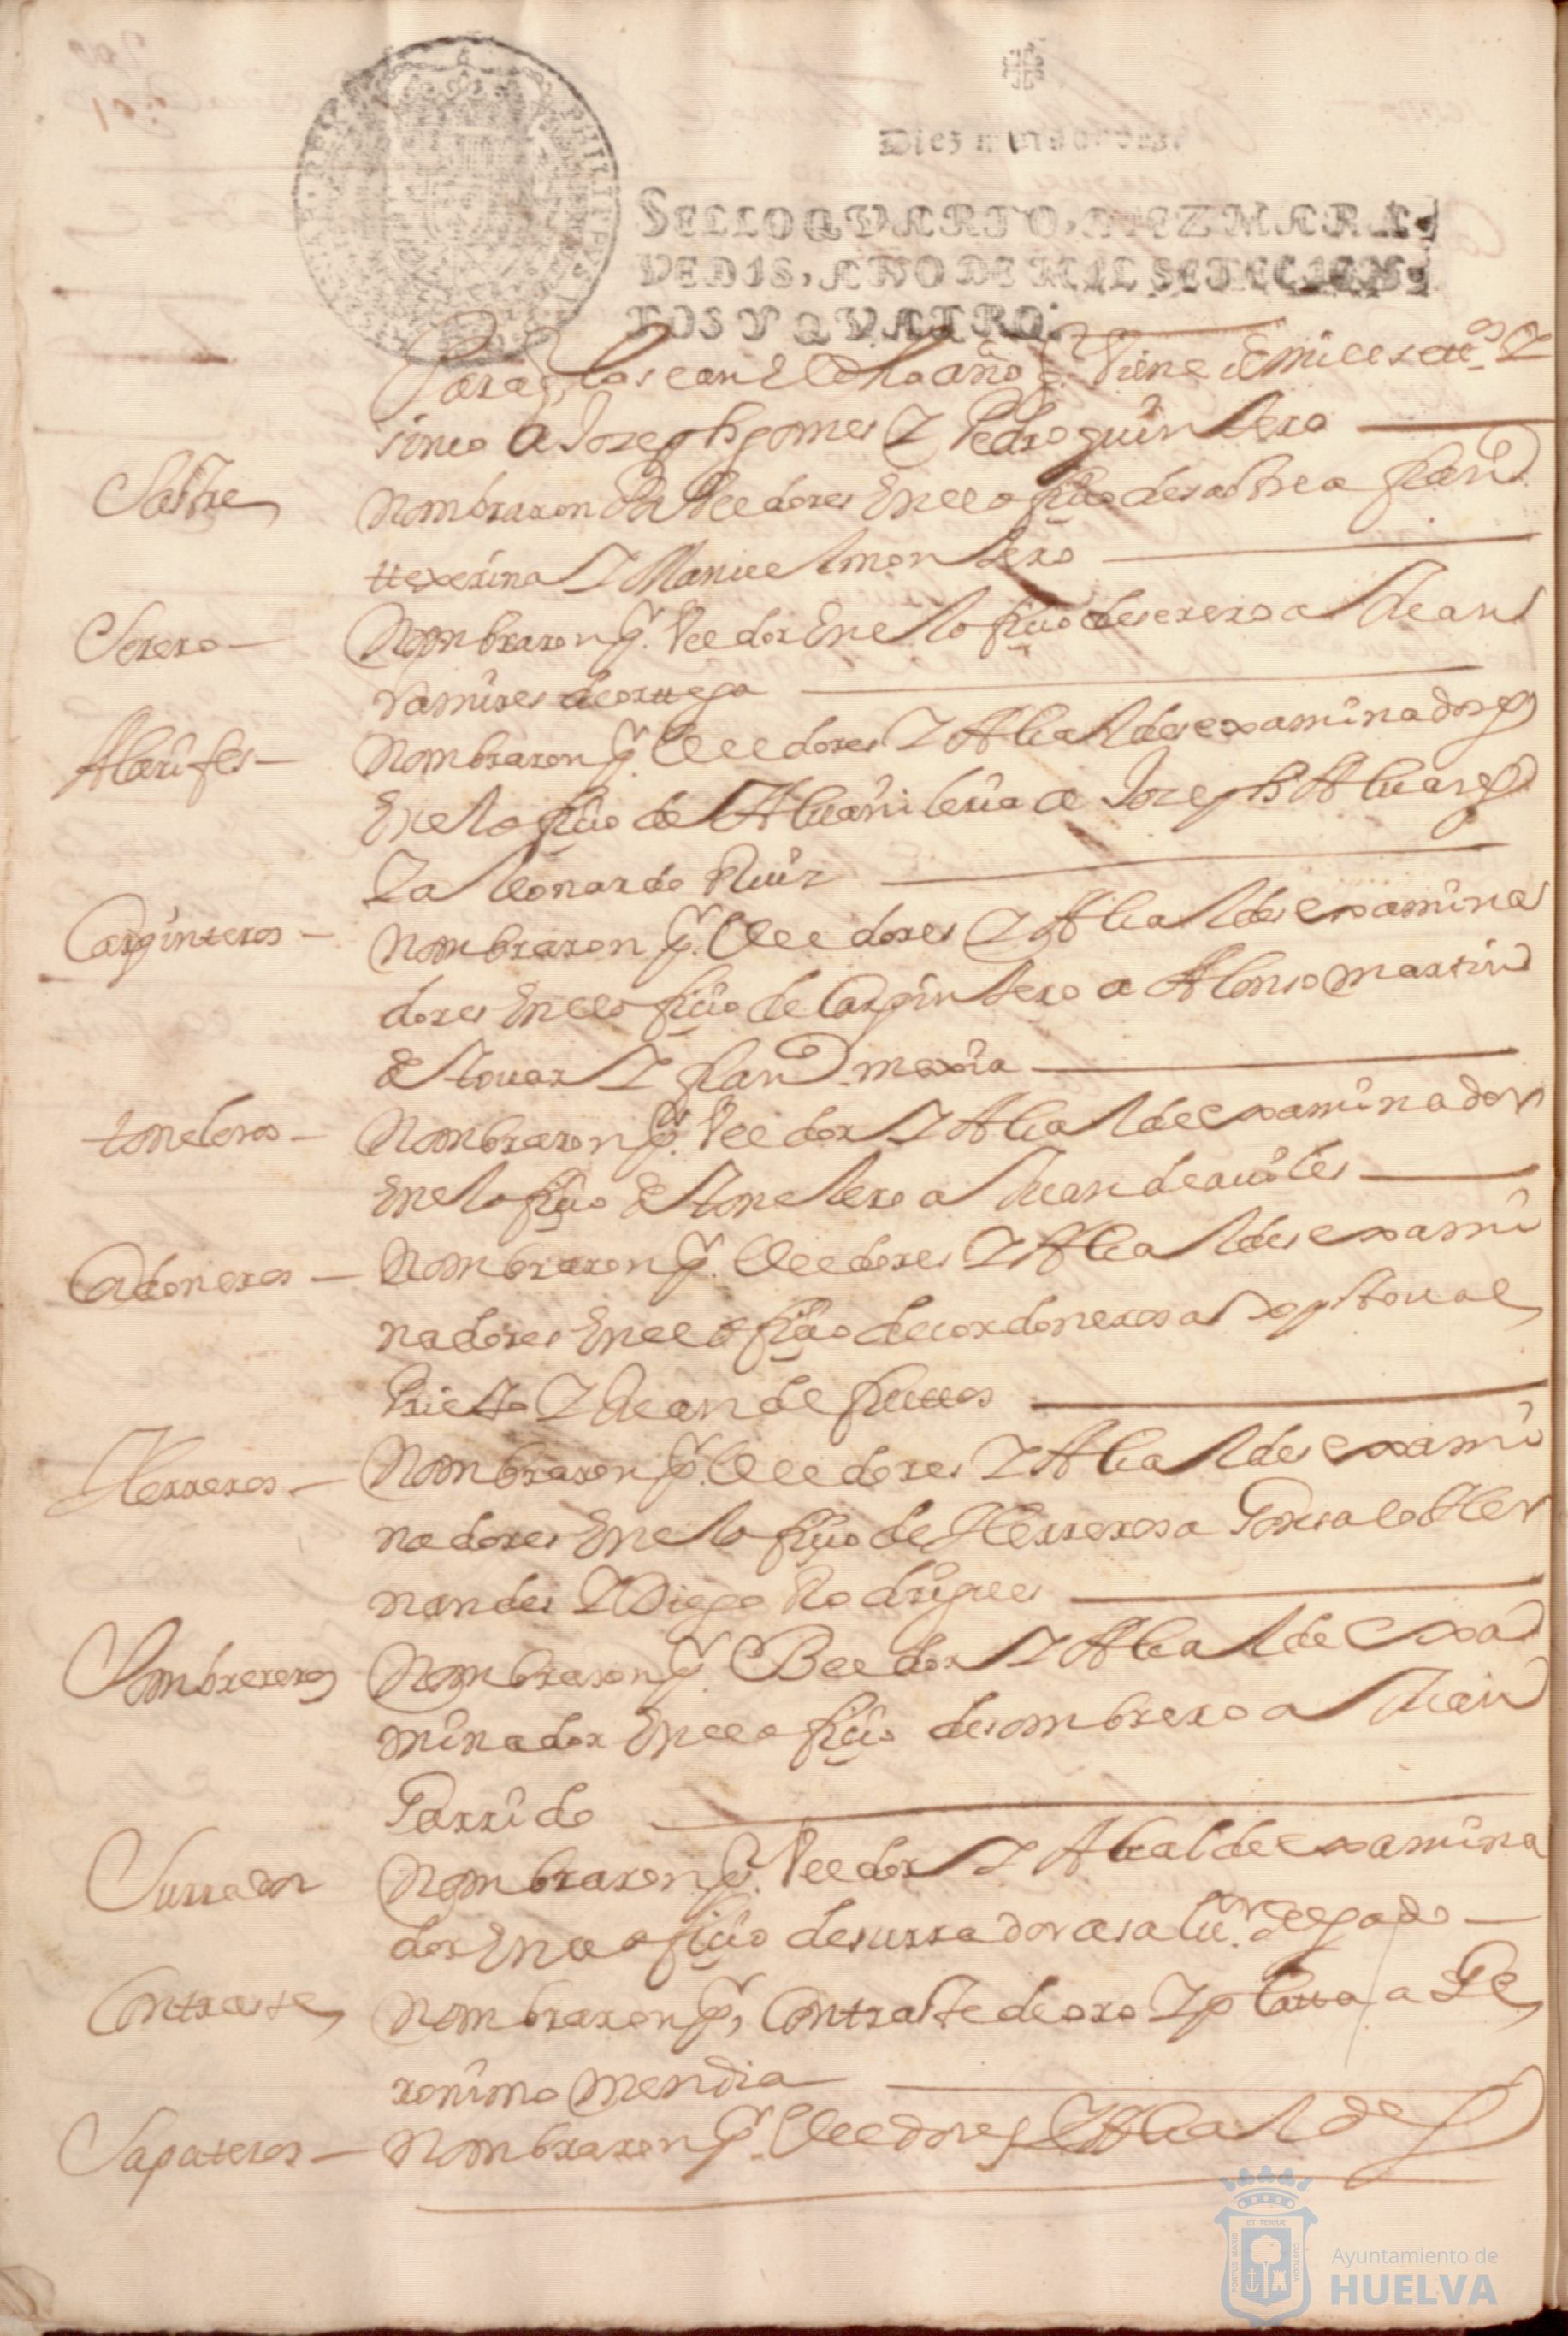 Diez maravedis.
SELLO QVARTO, DIEZ MARA-
VEDIS, AÑO DE MIL SETECIEN-
TOS Y QVATRO.
Para q̃ lo sean el dho año q̃ Viene de mill setts. Y
sinco a Joseph gomes Y Pedro quintero
Sastre
Nombraron Pa Veedores En el ofiçio de sastre a fran
ttexerina Y Manuel montero
Serero
Nombraron pr. Veedor En el ofiçio de serero a Juan
Ramires de orttega
Alarifes
Nombraron pr. Veedores Y Alcaldes examinadores
En el ofiçio de Alvañileria a Joseph Aluares
Y a leonardo Ruiz
Carpinteros
Nombraron pr. Veedores Y Alcaldes examina
dores En el ofiçio de Carpintero a Alonso martin
de touar Y fran mexia
toneleros
Nombraron pr. Veedor Y Alcalde examinador
En el ofiçio de tonelero a Juan de auiles
Cordoneros
Nombraron pr. Veedores Y Alcaldes exami
nadores En el ofiçio de cordoneros a xptoual
Prieto Y Juan de fluttos
Herreros
Nombraron pr. Veedores Y Alcaldes exami
nadores En el ofiçio de Herreros a Gonsalo Her
nandes Y Diego Rodrigues
Sombrereros
Nombraron pr. Beedor Y Alcalde exa
minador En el ofiçio de sombrero a Juan
Garrido
Surrador
Nombraron pr. Veedor Y Alcalde examina
dor En el ofiçio de surrador a saluor. delgado
Contraste
Nombraron pr, Contraste de oro Y platta a Ge
ronimo mendia
Sapateros
Nombraron pr. Veedores Y Alcaldes
PORTUS MARIS ET TERRÆ CUSTODIA
Ayuntamiento de
HUELVA